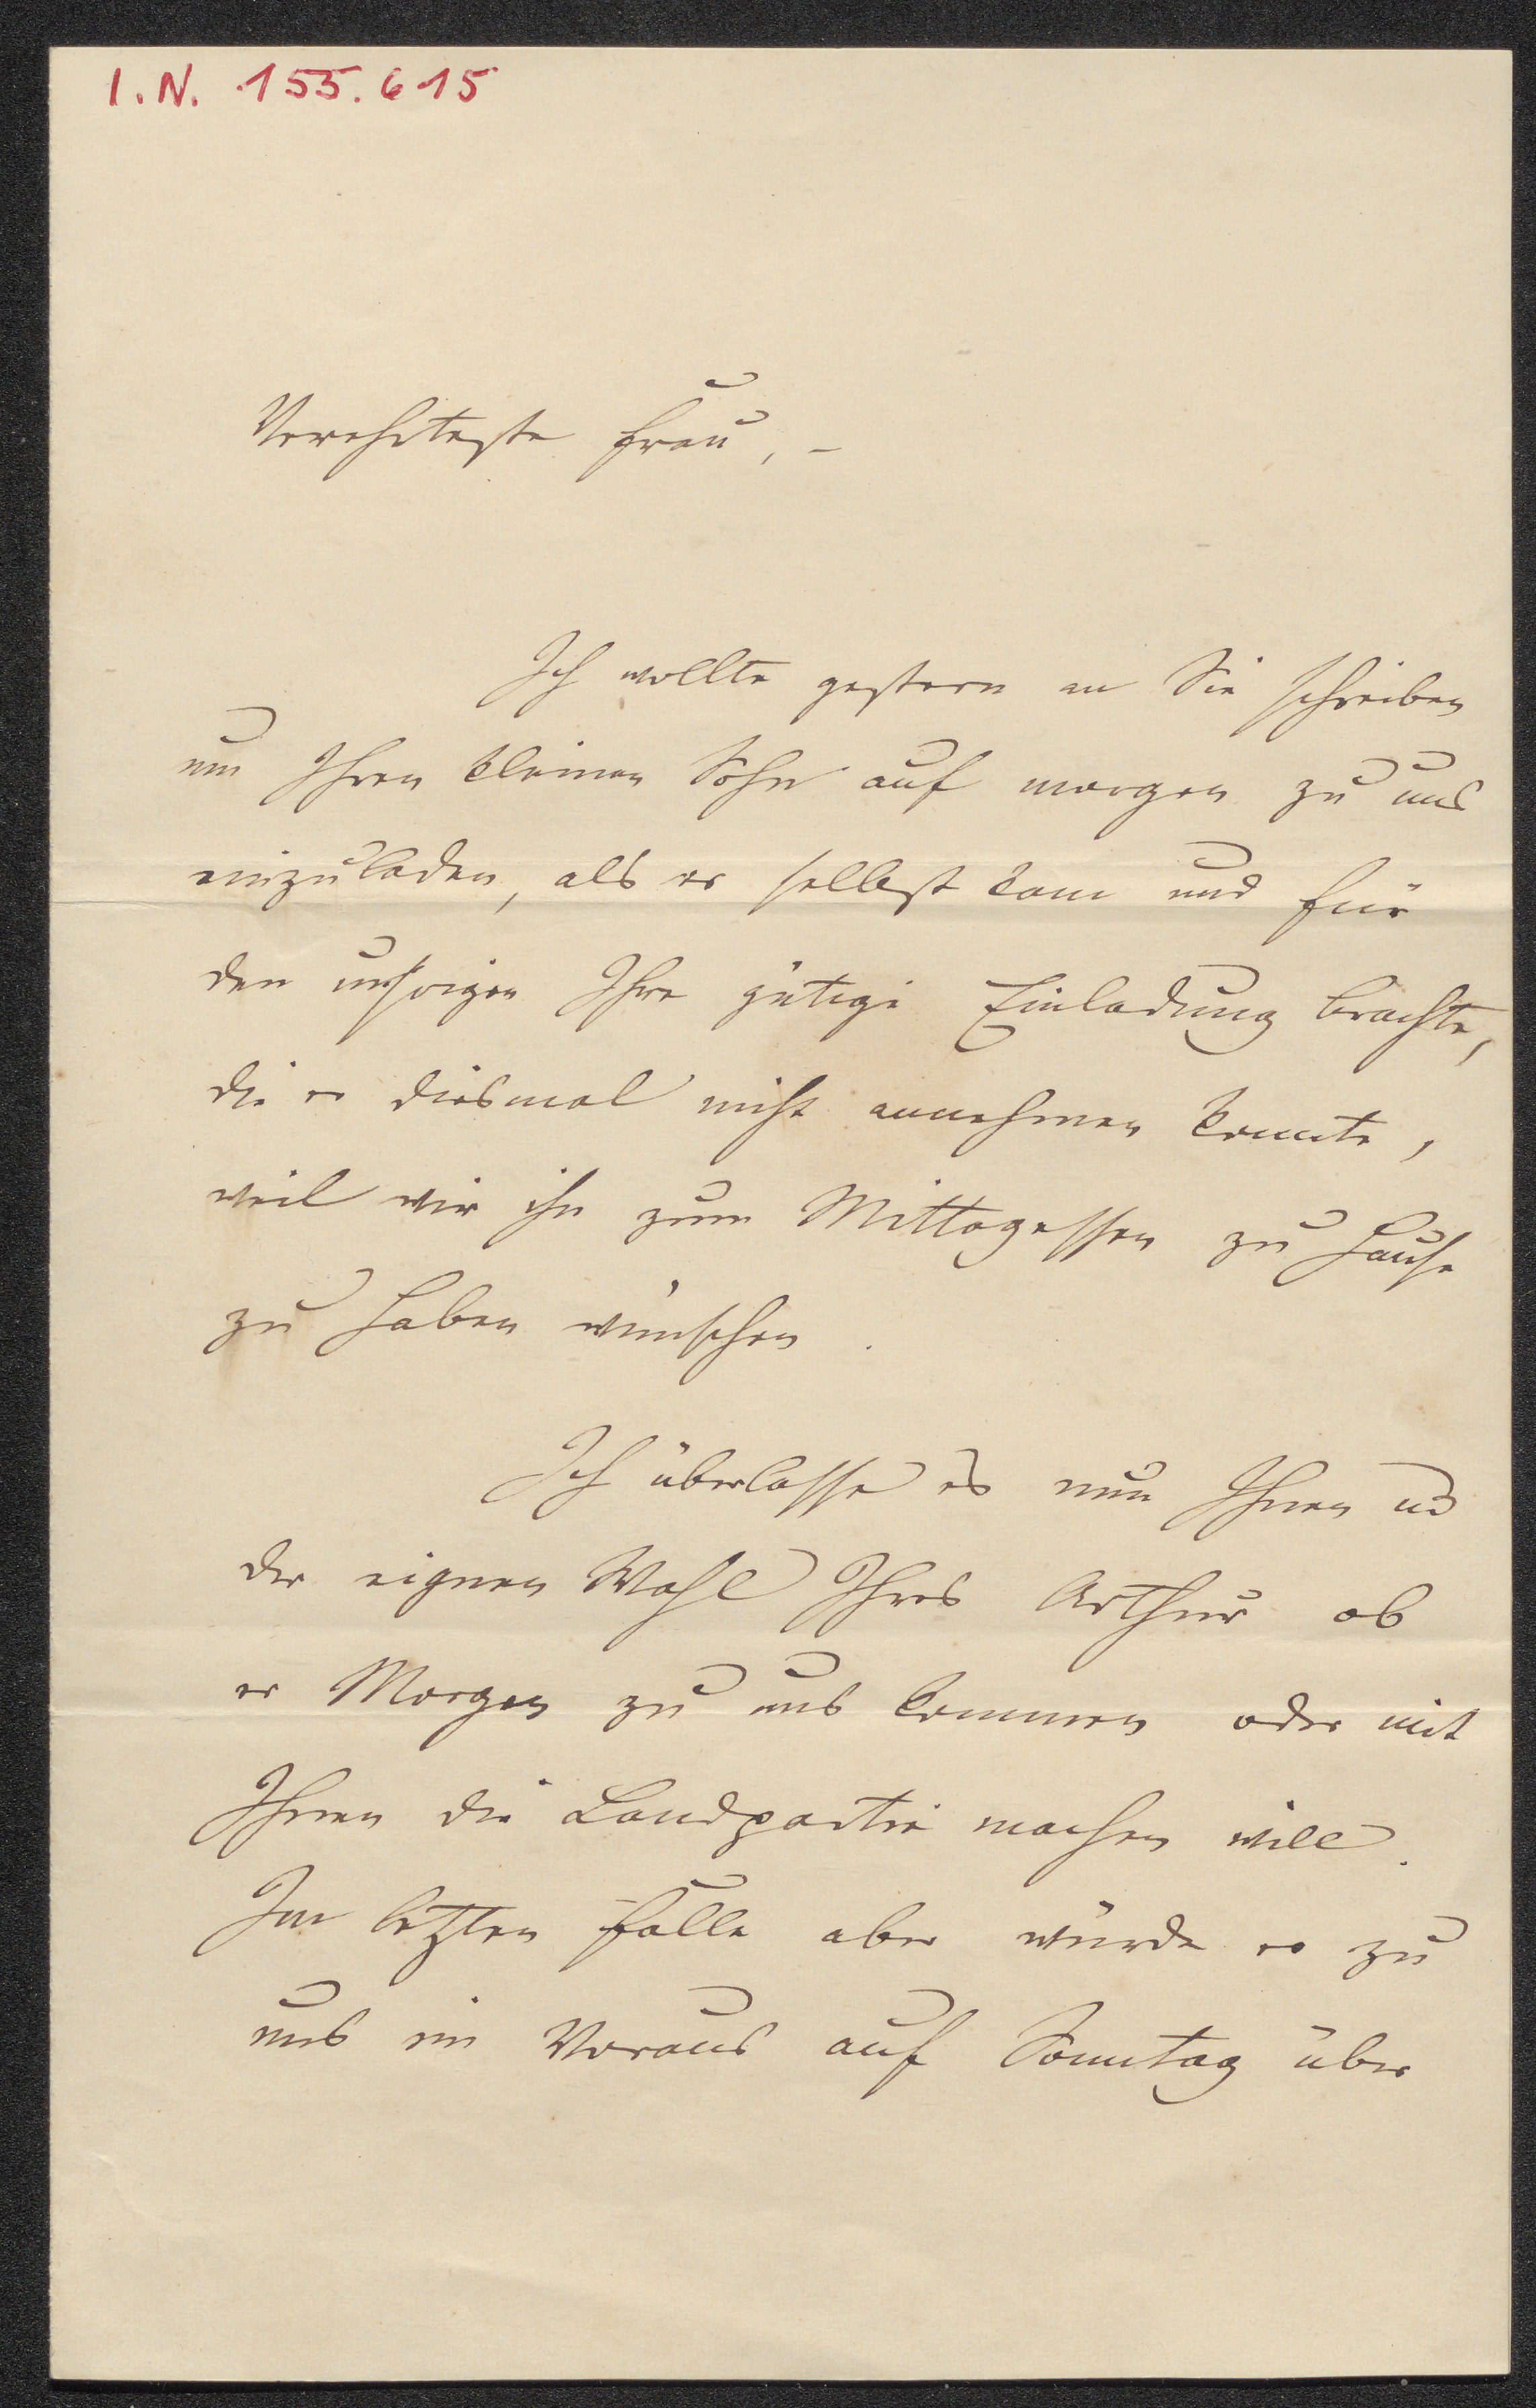 I.N. 155.615
Verehrteste Frau, –
Ich wollte gestern an Sie schreiben
um Ihren kleinen Sohn auf morgen zu uns
einzuladen, als er selbst kam und für
den unsrigen Ihre gütige Einladung brachte,
die er diesmal nicht annehmen konnte,
weil wir ihn zum Mittagessen zu Hause
zu haben wünschen.
Ich überlasse es nun Ihnen ud
der eignen Wahl Ihres Arthur ob
er Morgen zu uns kommen oder mit
Ihnen die Landpartie machen will.
Im letzten Falle aber würde er zu
uns im Voraus auf Sonntag über